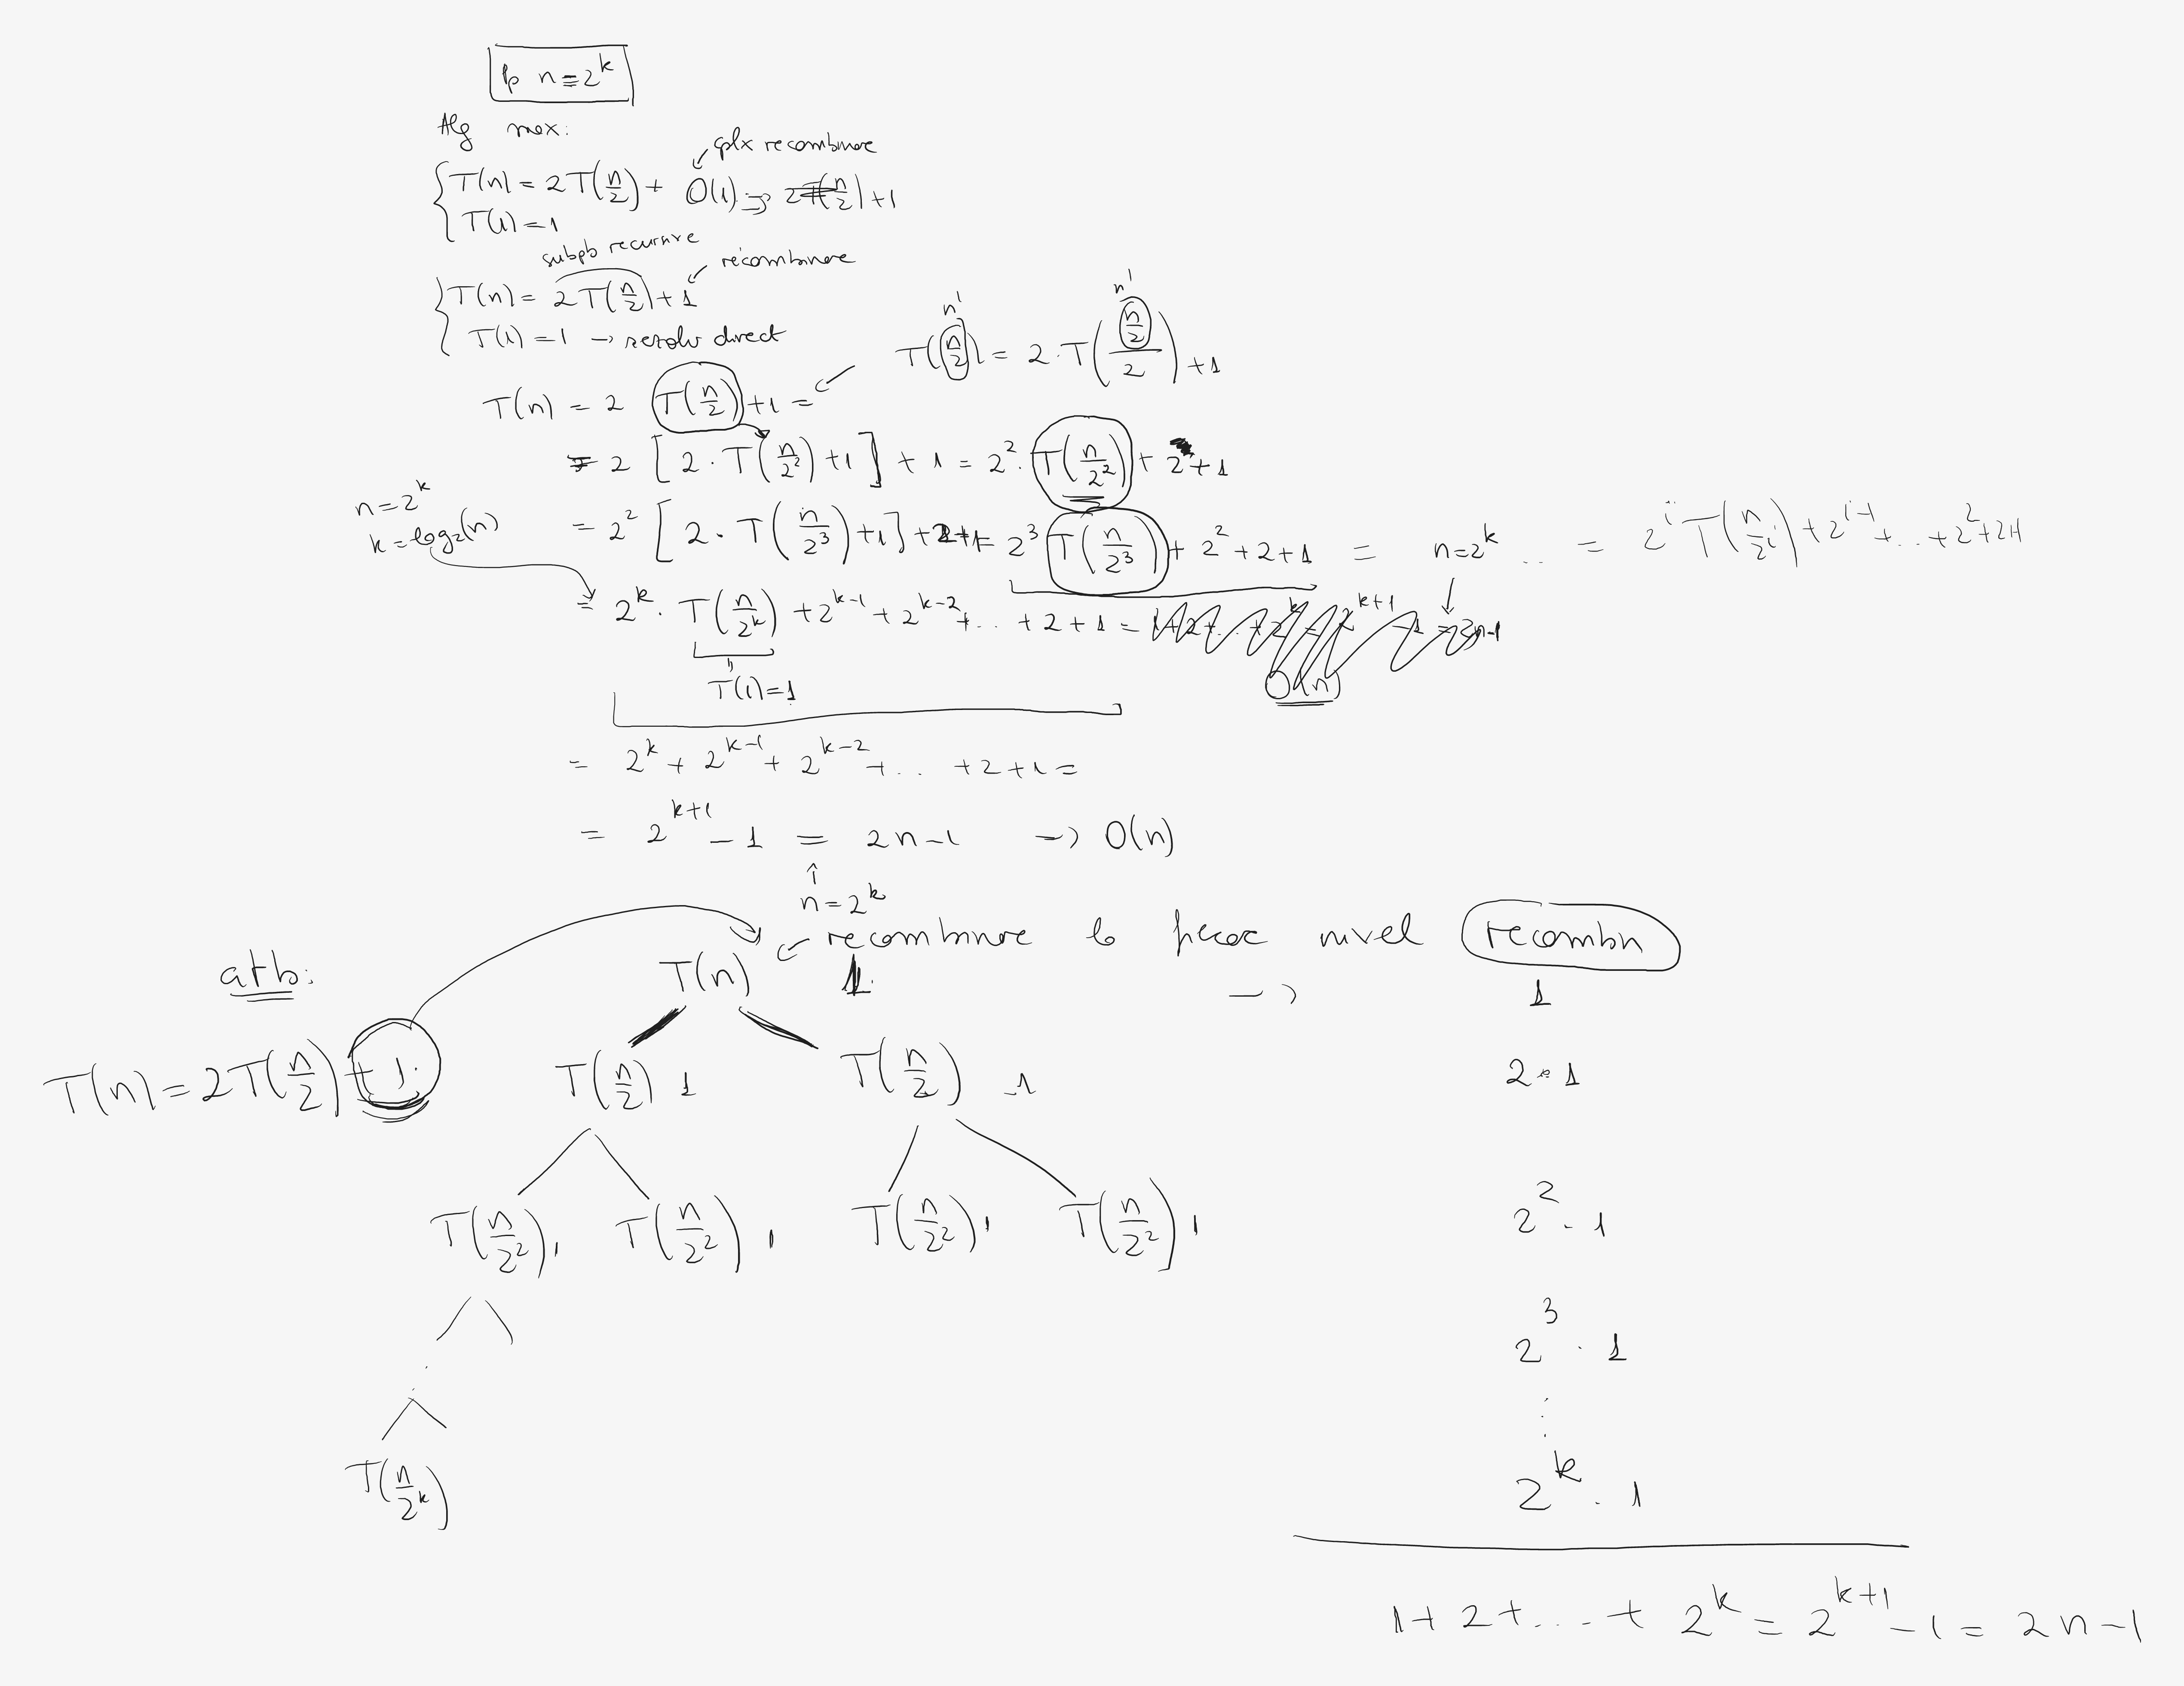 pp n=2^k
Alg max:
cplx recombinare
T(n) = 2T(n/2) + O(1) => 2T(n/2)+1
T(1) = 1
subpb recursive
recombinare
T(n) = 2T(n/2) + 1
T(1) = 1 -> rezolv direct
n' n'
T(n/2) = 2·T((n/2)/2) + 1
T(n) = 2 T(n/2) + 1 =
= 2 [2·T(n/2^2) + 1] + 1 = 2^2·T(n/2^2) + 2 + 1
n = 2^k
k = log2(n)
= 2^2 [2·T(n/2^3) + 1] + 2+1 = 2^3 T(n/2^3) + 2^2 + 2 + 1 = n=2^k .. = 2^i T(n/2^i) + 2^(i-1) + .. + 2^2 + 2+1
= 2^k · T(n/2^k) + 2^(k-1) + 2^(k-2) + .. + 2 + 1 = 1+2+..+2^k = 2^(k+1) -1 = 2n-1
T(1) = 1
O(n)
= 2^k + 2^(k-1) + 2^(k-2) + .. + 2 + 1 =
= 2^(k+1) - 1 = 2n-1 -> O(n)
n = 2^k
recombinare la fiecare nivel recombn
arb:
T(n) 1 -> 1
T(n) = 2T(n/2) + 1
T(n/2) 1 T(n/2) 1 2·1
T(n/2^2) 1 T(n/2^2) 1 T(n/2^2) 1 T(n/2^2) 1 2^2·1
2^3 · 1
T(n/2^k) 2^k · 1
1 + 2 + ... + 2^k = 2^(k+1) - 1 = 2n-1